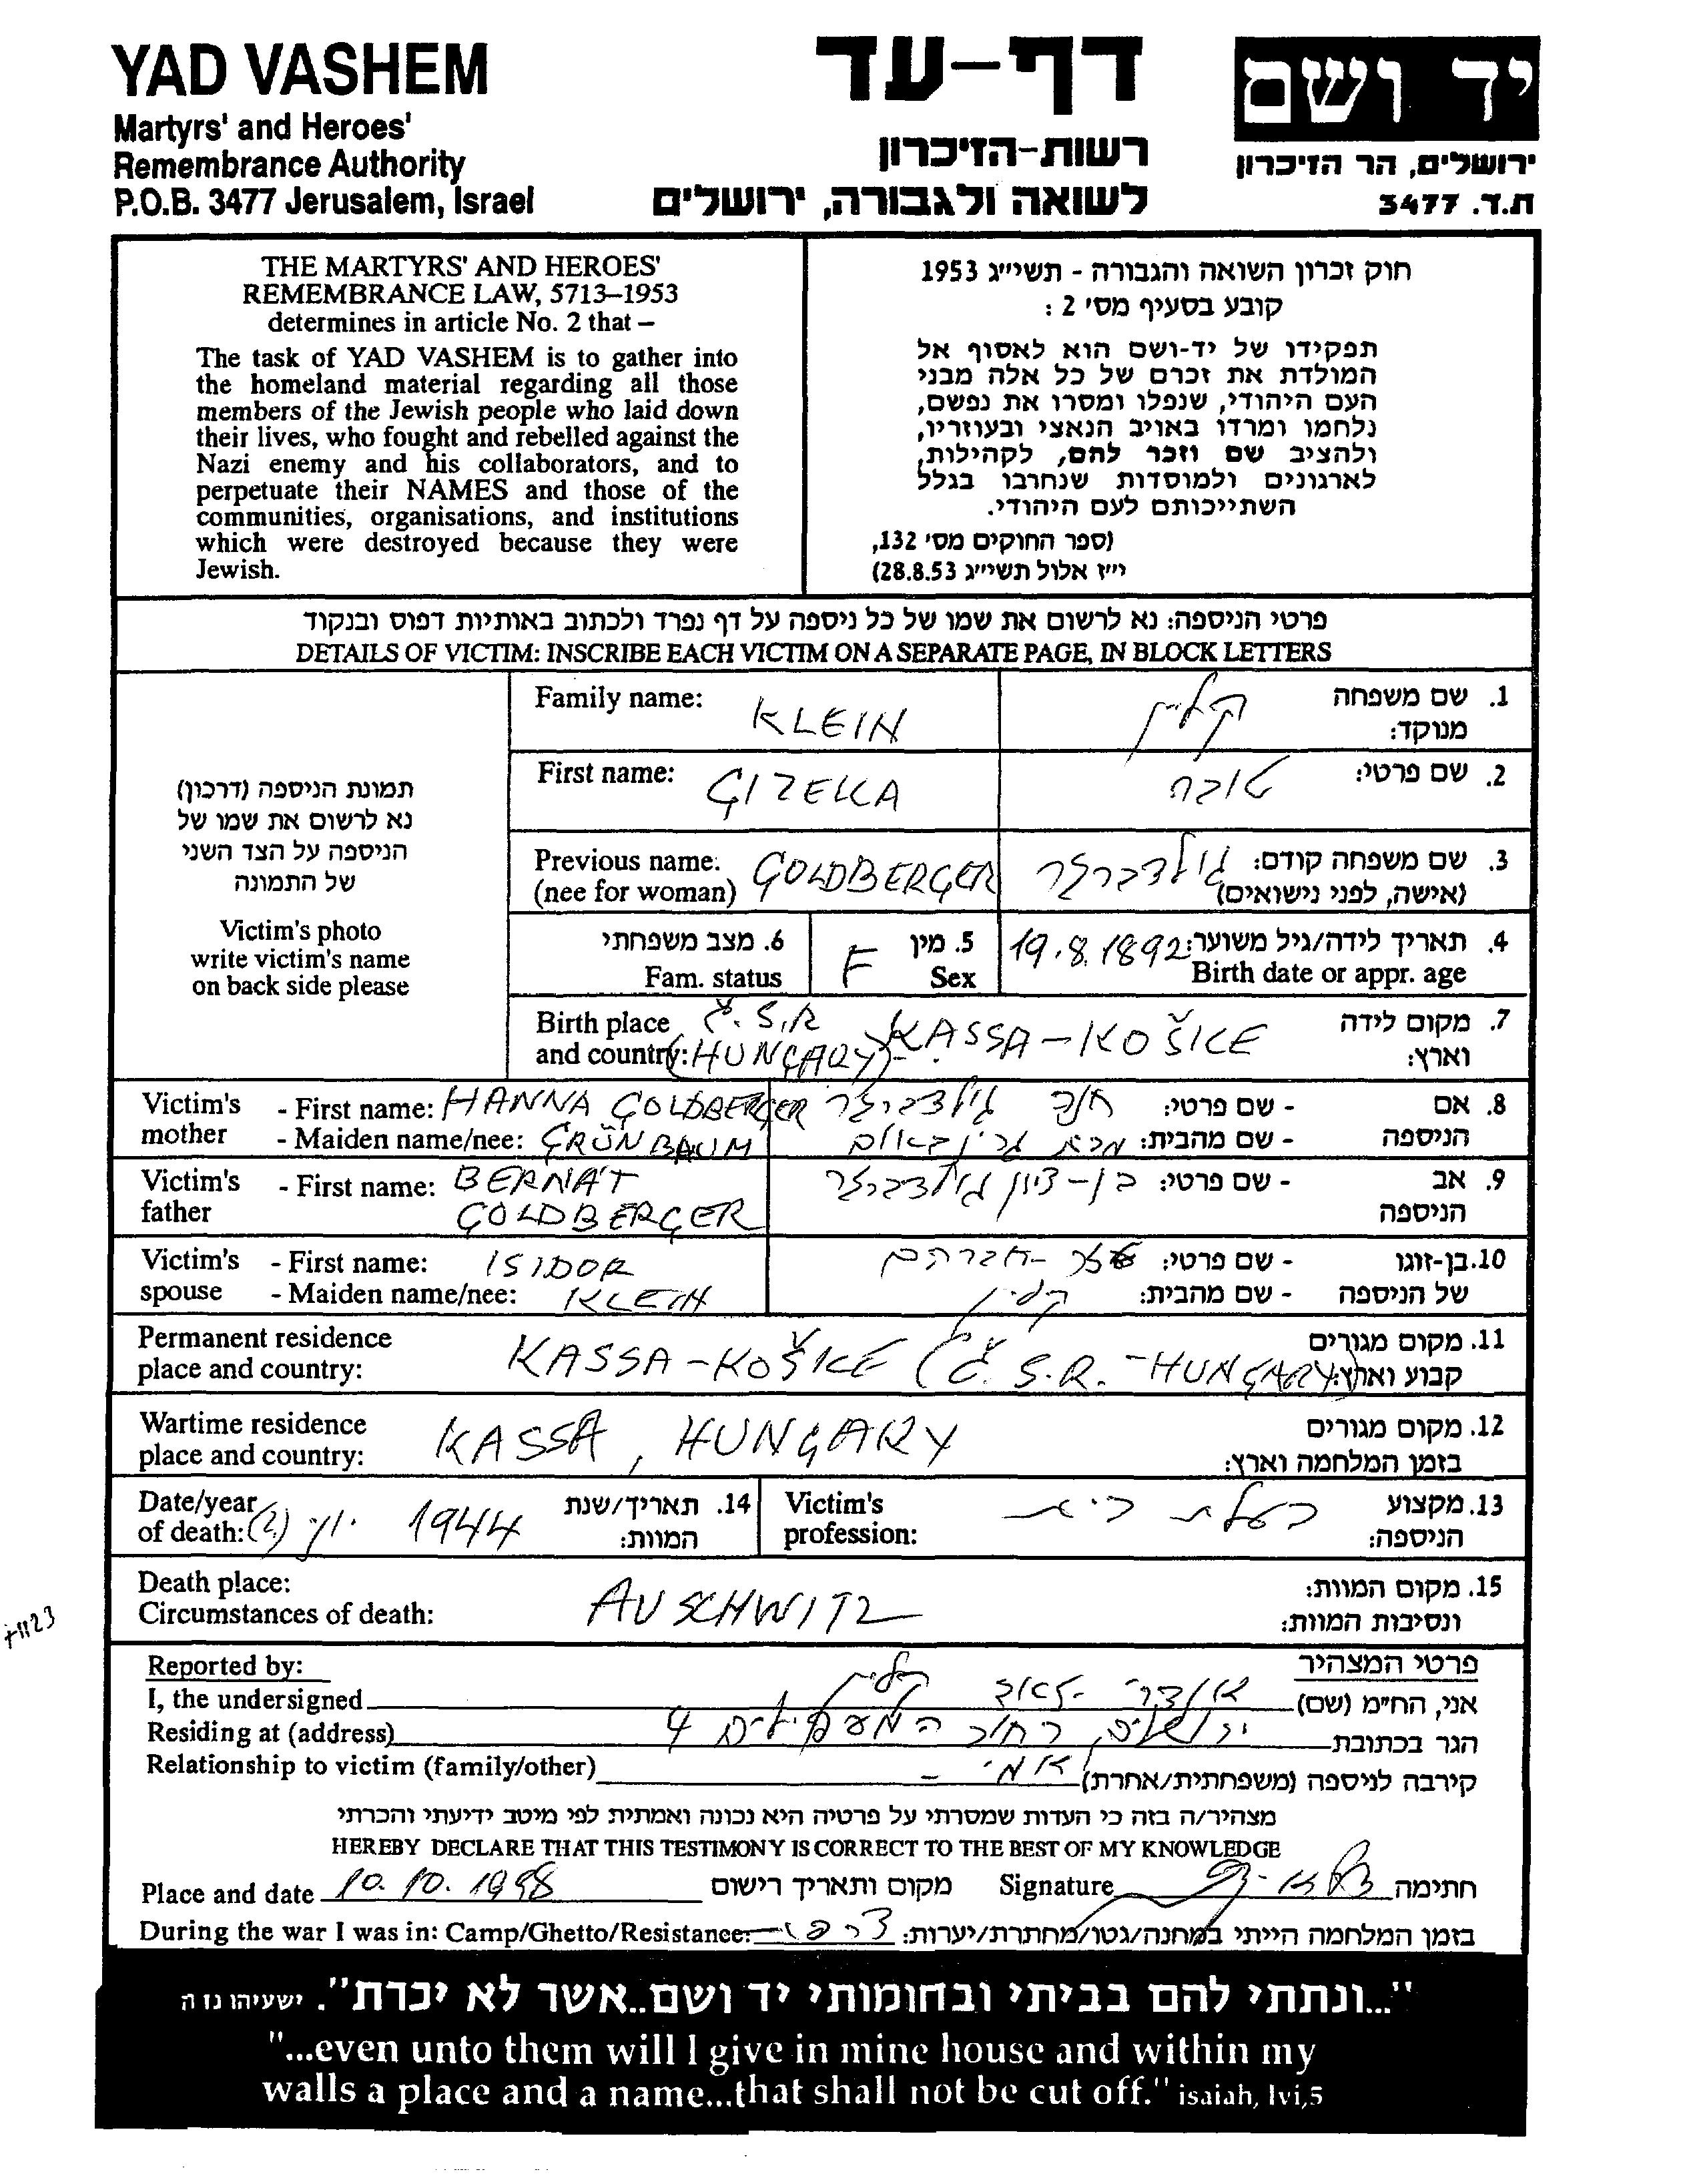 YAD VASHEM
Martyrs' and Heroes'
Remembrance Authority
P.O.B. 3477 Jerusalem, Israel
דף-עד
רשות-הזיכרון
לשואה ולגבורה, ירושלים
יד ושם
ירושלים, הר הזיכרון
ת.ד. 3477
THE MARTYRS' AND HEROES'
REMEMBRANCE LAW, 5713–1953
determines in article No. 2 that –
The task of YAD VASHEM is to gather into
the homeland material regarding all those
members of the Jewish people who laid down
their lives, who fought and rebelled against the
Nazi enemy and his collaborators, and to
perpetuate their NAMES and those of the
communities, organisations, and institutions
which were destroyed because they were
Jewish.
חוק זכרון השואה והגבורה - תשי״ג 1953
קובע בסעיף מס׳ 2 :
תפקידו של יד-ושם הוא לאסוף אל
המולדת את זכרם של כל אלה מבני
העם היהודי, שנפלו ומסרו את נפשם,
נלחמו ומרדו באויב הנאצי ובעוזריו,
ולהציב שם וזכר להם, לקהילות,
לארגונים ולמוסדות שנחרבו בגלל
השתייכותם לעם היהודי.
(ספר החוקים מס׳ 132,
י״ז אלול תשי״ג 28.8.53)
פרטי הניספה: נא לרשום את שמו של כל ניספה על דף נפרד ולכתוב באותיות דפוס ובנקוד
DETAILS OF VICTIM: INSCRIBE EACH VICTIM ON A SEPARATE PAGE, IN BLOCK LETTERS
תמונת הניספה (דרכון)
נא לרשום את שמו של
הניספה על הצד השני
של התמונה
Victim's photo
write victim's name
on back side please
Family name: KLEIN קליין 1. שם משפחה
מנוקד:
First name: GIZELLA טובה 2. שם פרטי:
Previous name: GOLDBERGER גולדברגר 3. שם משפחה קודם:
(nee for woman) (אישה, לפני נישואים)
6. מצב משפחתי F 5. מין 19.8.1892 4. תאריך לידה/גיל משוער:
Fam. status Sex Birth date or appr. age
Birth place Č.S.R KASSA - KOŠICE 7. מקום לידה
and country: (HUNGARY) וארץ:
Victim's - First name: HANNA GOLDBERGER חנה גולדברגר - שם פרטי: 8. אם
mother - Maiden name/nee: GRÜNBAUM גרינבאום - שם מהבית: הניספה
Victim's - First name: BERNÁT בן-ציון גולדברגר - שם פרטי: 9. אב
father GOLDBERGER הניספה
Victim's - First name: ISIDOR אברהם - שם פרטי: 10. בן-זוגו
spouse - Maiden name/nee: KLEIN קליין - שם מהבית: של הניספה
Permanent residence 11. מקום מגורים
place and country: KASSA - KOŠICE (Č.S.R. - HUNGARY) קבוע וארץ:
Wartime residence 12. מקום מגורים
place and country: KASSA, HUNGARY בזמן המלחמה וארץ:
Date/year 14. תאריך/שנת
of death: (?) יוני 1944 המוות:
Victim's בעלת בית 13. מקצוע
profession: הניספה:
Death place: 15. מקום המוות:
Circumstances of death: AUSCHWITZ ונסיבות המוות:
Reported by: פרטי המצהיר
I, the undersigned קליין אני, הח״מ (שם)
Residing at (address) ירושלים, רחוב המעפילים 4 הגר בכתובת
Relationship to victim (family/other) אמי קירבה לניספה (משפחתית/אחרת)
מצהיר/ה בזה כי העדות שמסרתי על פרטיה היא נכונה ואמתית לפי מיטב ידיעתי והכרתי
HEREBY DECLARE THAT THIS TESTIMONY IS CORRECT TO THE BEST OF MY KNOWLEDGE
Place and date 10.10.1998 מקום ותאריך רישום Signature חתימה
During the war I was in: Camp/Ghetto/Resistance: בזמן המלחמה הייתי במחנה/גטו/מחתרת/יערות:
"...ונתתי להם בביתי ובחומותי יד ושם..אשר לא יכרת". ישעיהו נו ה
"...even unto them will I give in mine house and within my
walls a place and a name...that shall not be cut off." isaiah, lvi,5